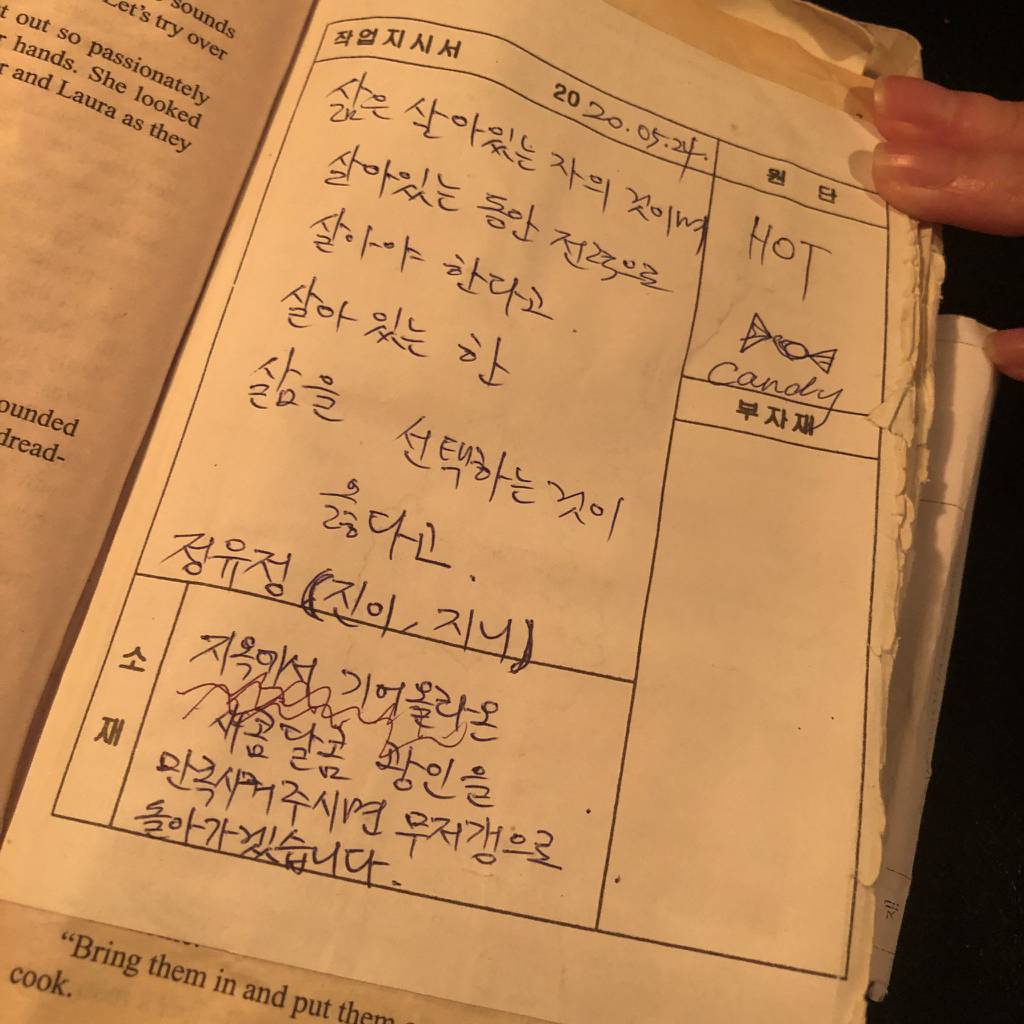 sounds
Let's try over
t out so passionately
r hands. She looked
r and Laura as they
ounded
dread-
작업지시서
2020.05.24.
삶은 살아있는 자의 것이며
살아있는 동안 전력으로
살아야 한다고.
살아 있는 한
삶을
선택하는 것이
옳다고.
정유정 (진이, 지니)
원 단
HOT
candy
부자재
소
재
지옥에서 기어올라온
새콤달콤 광인을
만족시켜주시면 무저갱으로
돌아가겠습니다.
“Bring them in and put them
cook.